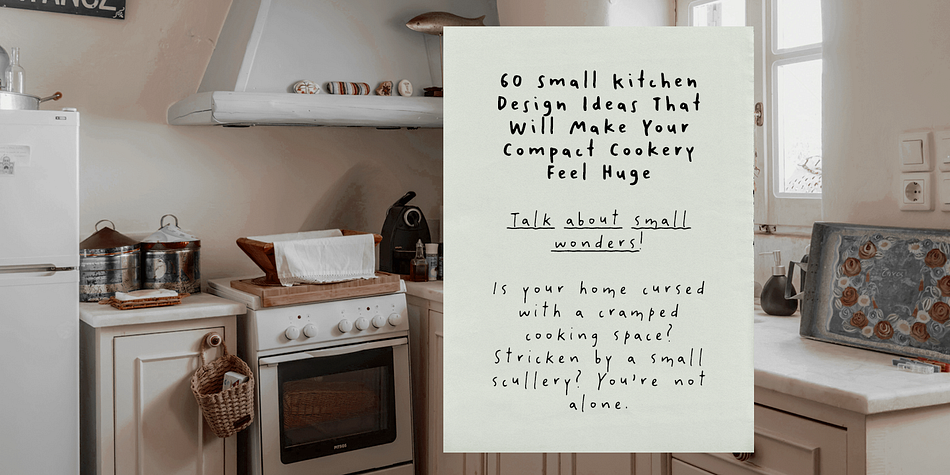 60 Small Kitchen
Design Ideas That
Will Make Your
Compact Cookery
Feel Huge
Talk about small
wonders!
Is your home cursed
with a cramped
cooking space?
Stricken by a small
scullery? You're not
alone.